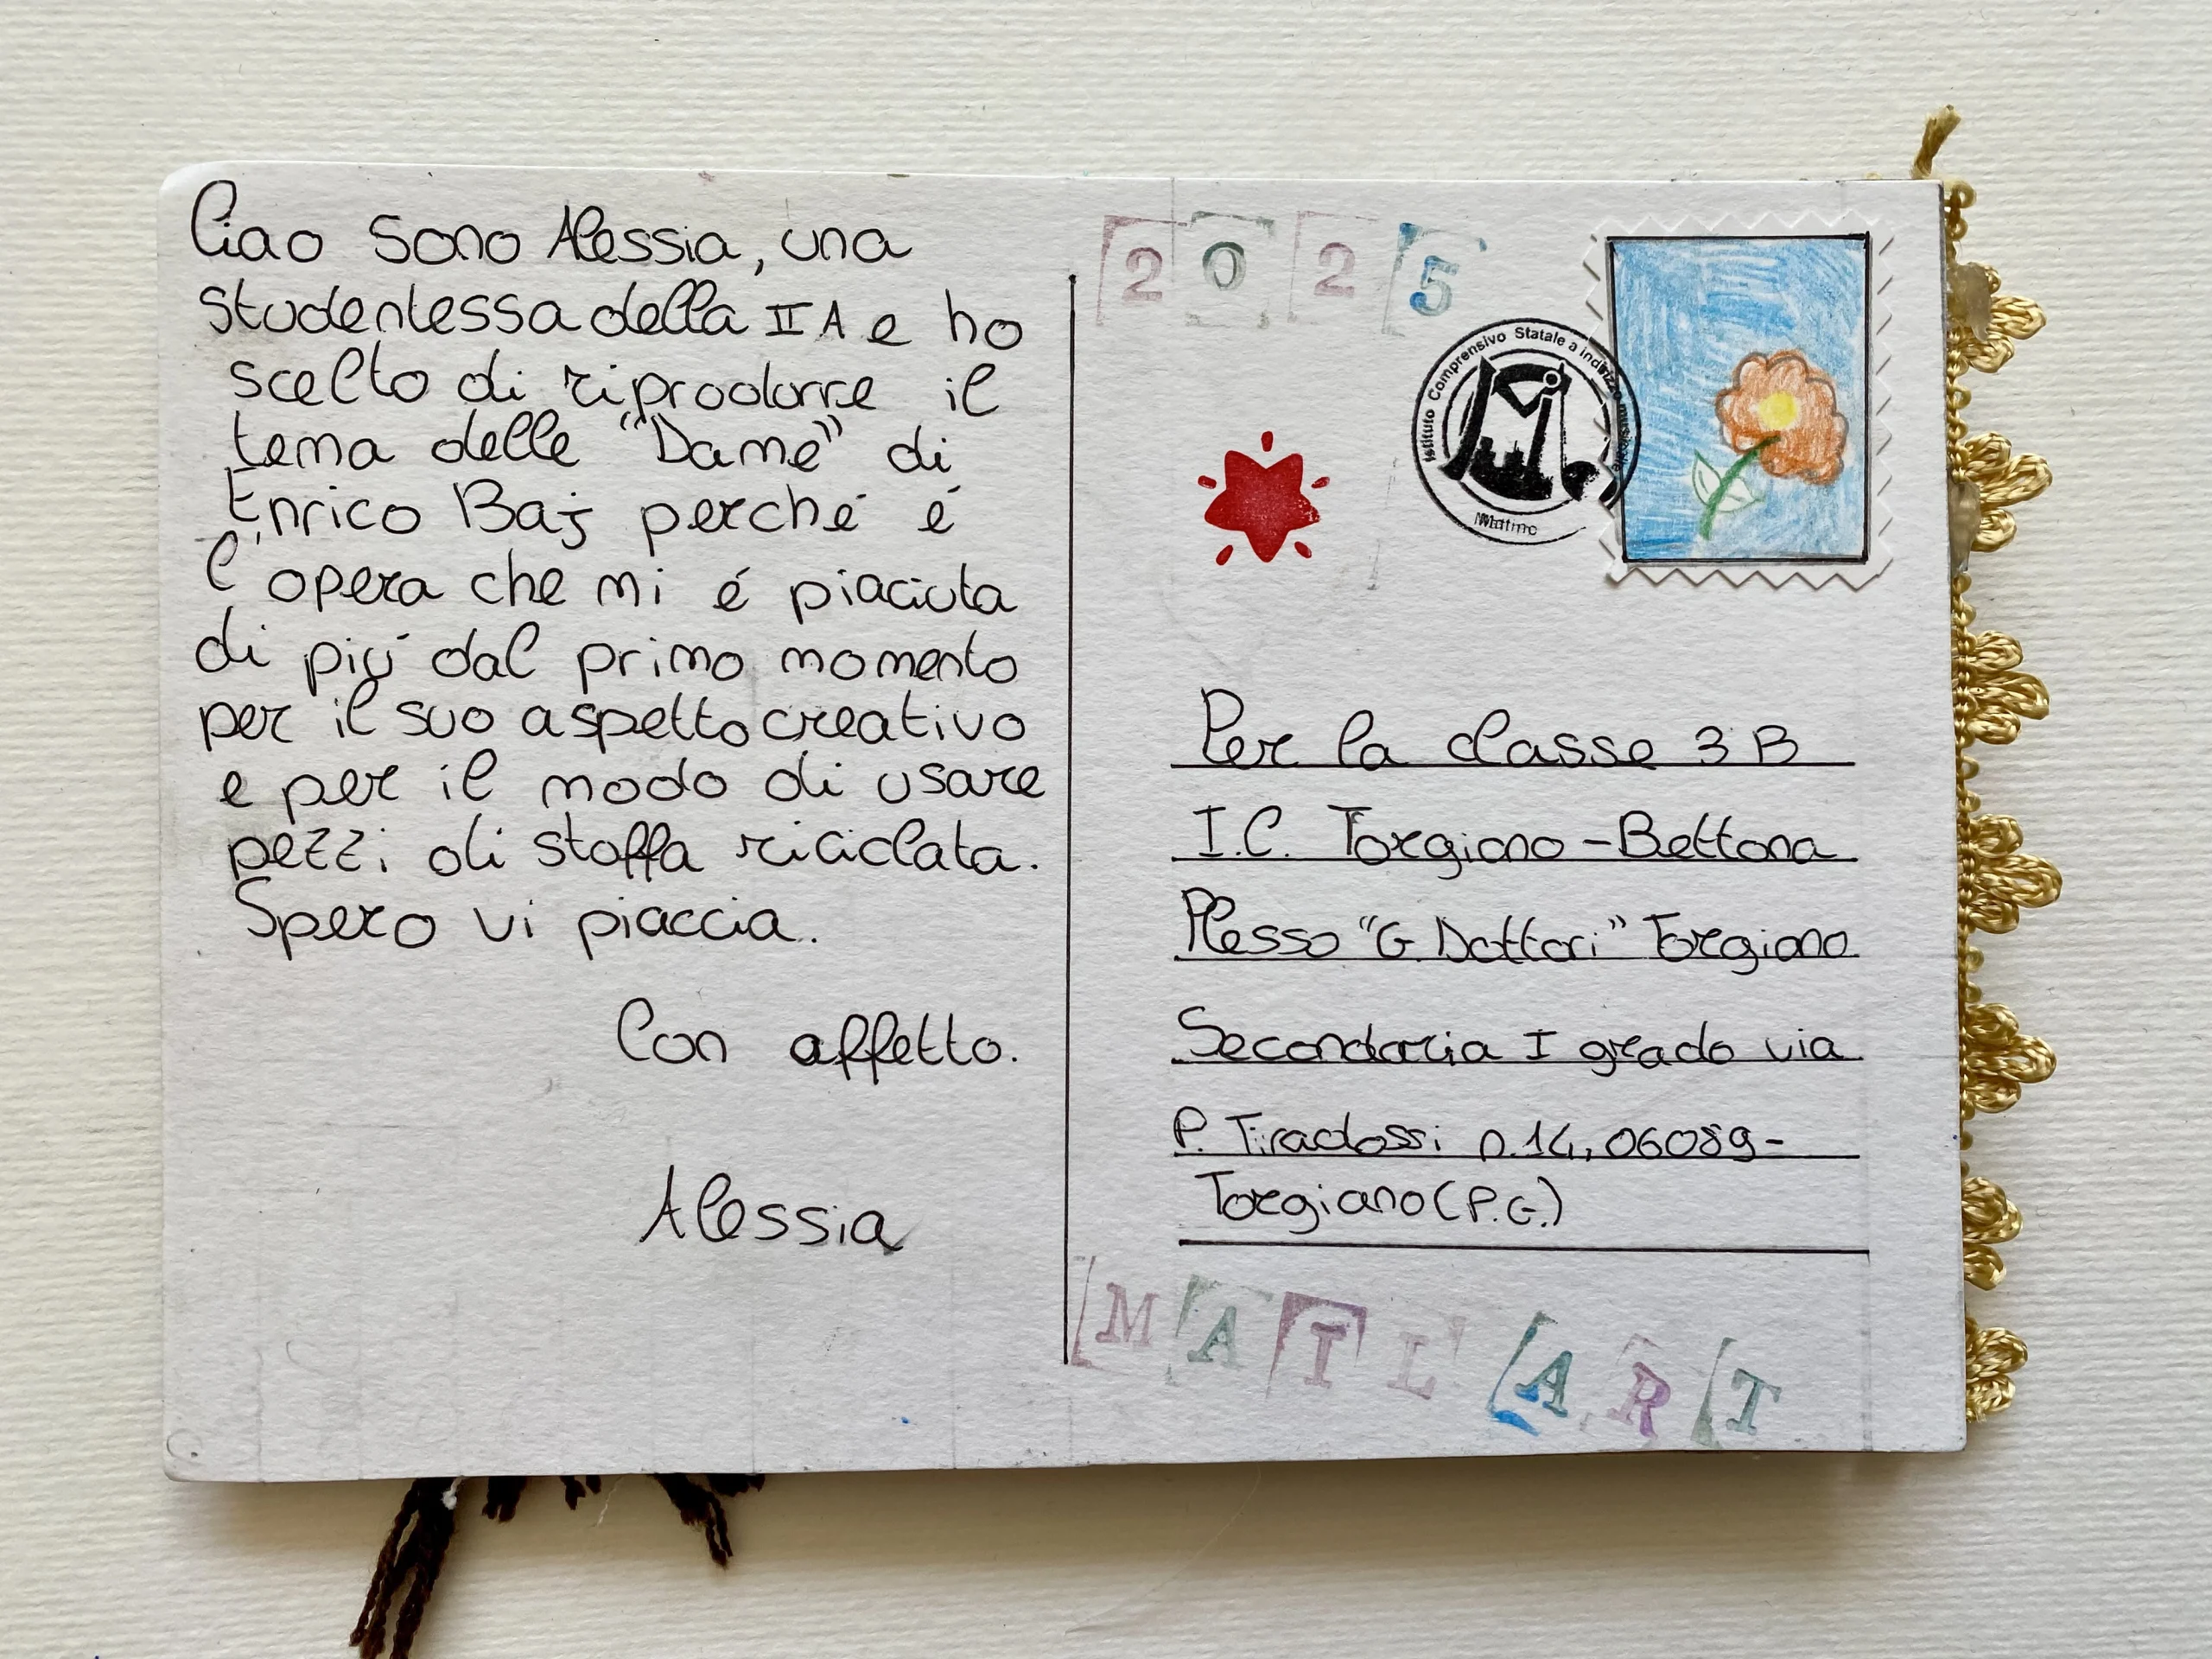 Ciao sono Alessia, una
studentessa della II A e ho
scelto di riprodurre il
tema delle "Dame" di
Enrico Baj perché é
l'opera che mi é piaciuta
di piú dal primo momento
per il suo aspetto creativo
e per il modo di usare
pezzi di stoffa riciclata.
Spero vi piaccia.
Con affetto.
Alessia
2025
Istituto Comprensivo Statale a indirizzo musicale
Matino
Per la classe 3B
I.C. Torgiano-Bettona
Plesso "G. Dottori" Torgiano
Secondaria I grado via
P. Tiradossi n.14, 06089-
Torgiano (P.G.)
MAIL ART